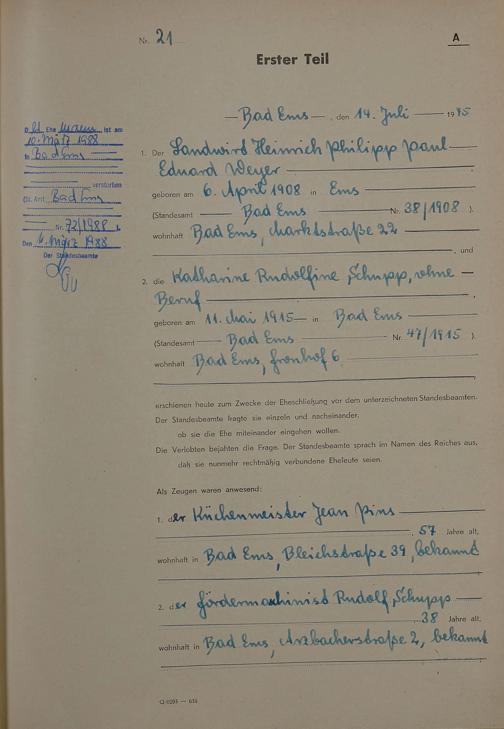 Nr. 21
A
Erster Teil
Bad Ems, den 14. Juli 1945
1. Der Landwirt Heinrich Philipp Paul
Eduard Weyer
geboren am 6. April 1908 in Ems
(Standesamt Bad Ems Nr. 38/1908 )
wohnhaft Bad Ems, Marktstraße 22
, und
2. die Katharine Rudolfine Schupp, ohne
Beruf
geboren am 11. Mai 1915 in Bad Ems
(Standesamt Bad Ems Nr. 47/1915 )
wohnhaft Bad Ems, Fronhof 6
erschienen heute zum Zwecke der Eheschließung vor dem unterzeichneten Standesbeamten.
Der Standesbeamte fragte sie einzeln und nacheinander,
ob sie die Ehe miteinander eingehen wollen.
Die Verlobten bejahten die Frage. Der Standesbeamte sprach im Namen des Reiches aus,
daß sie nunmehr rechtmäßig verbundene Eheleute seien.
Als Zeugen waren anwesend:
1. der Küchenmeister Jean Pins
, 57 Jahre alt,
wohnhaft in Bad Ems, Bleichstraße 39, bekannt
2. der Fördermaschinist Rudolf Schupp
, 38 Jahre alt,
wohnhaft in Bad Ems, Arzbacherstraße 2, bekannt
Ehe ist am
10. März 1988
in Bad Ems
verstorben
St. Amt Bad Ems
Nr. 72/1988
Den März 1988
Der Standesbeamte